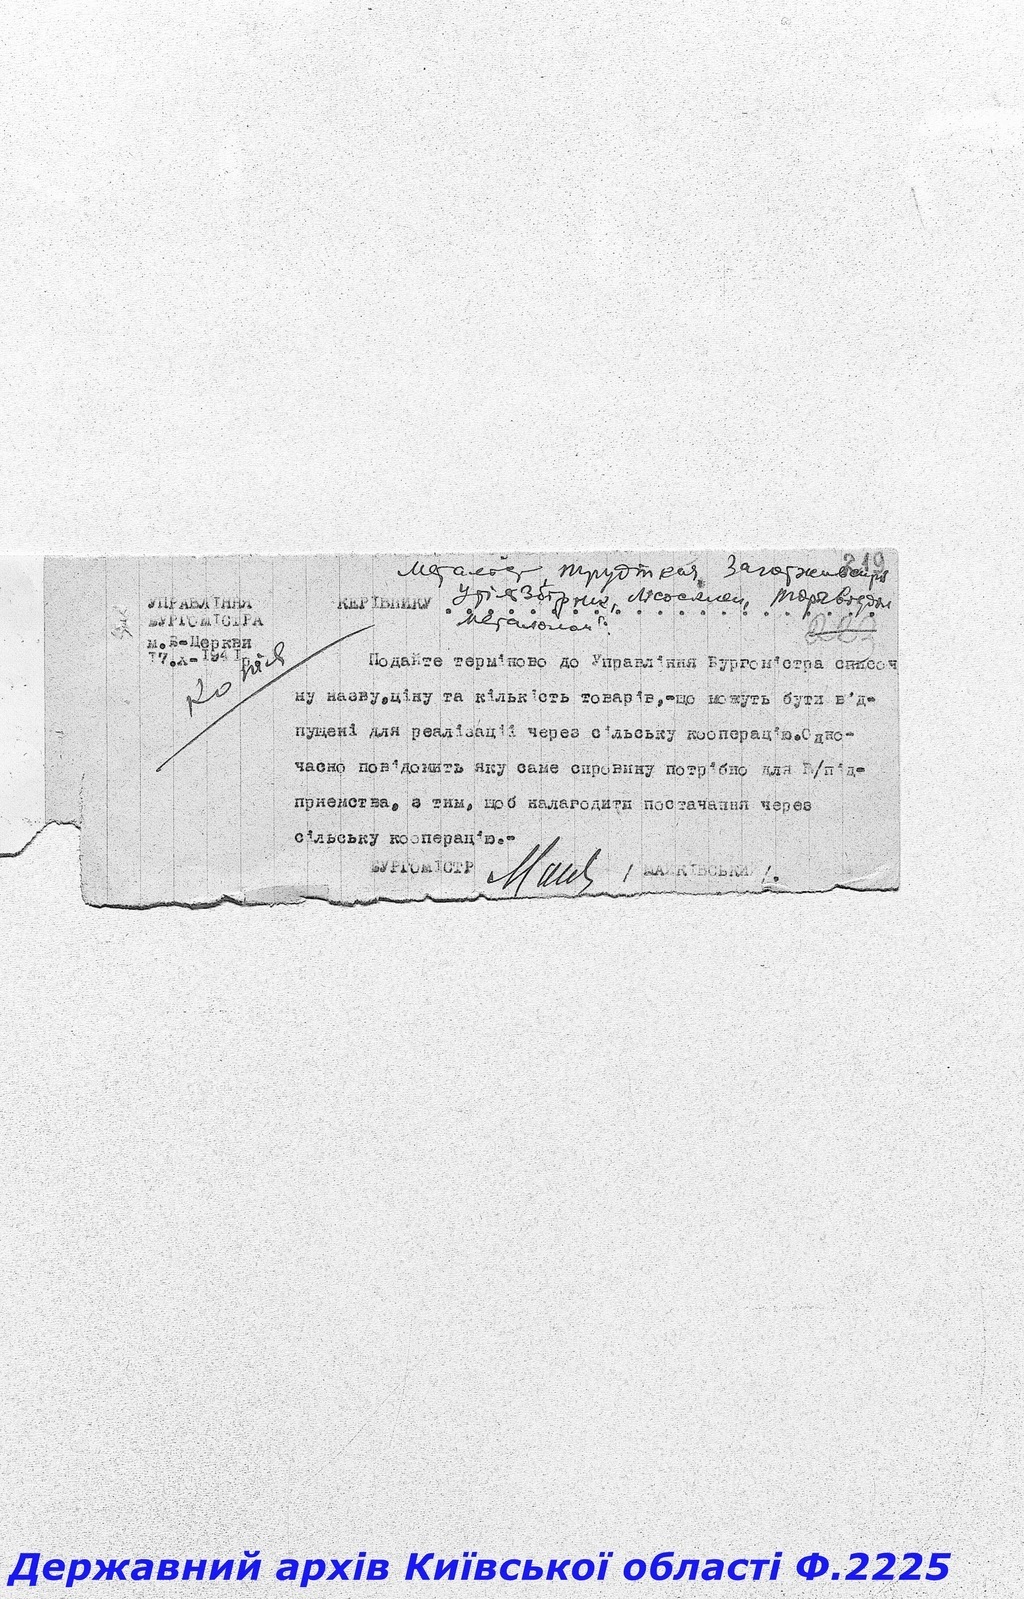 219
УПРАВЛІННЯ
БУРГОМІСТРА
м.Б-Церкви
17.X-1941р.
Копія
КЕРІВНИКУ
Утільзбірник,
Подайте терміново до Управління Бургомістра списоч
ну назву,ціну та кількість товарів,-що можуть бути від-
пущені для реалізації через сільську кооперацію.Одно-
часно повідомить яку саме сировину потрібно для В/підп-
приемства, з тим, щоб налагодити постачання через
сільську кооперацію.-
БУРГОМІСТР / МАЯКІВСЬКИЙ/.
Державний архів Київської області Ф.2225